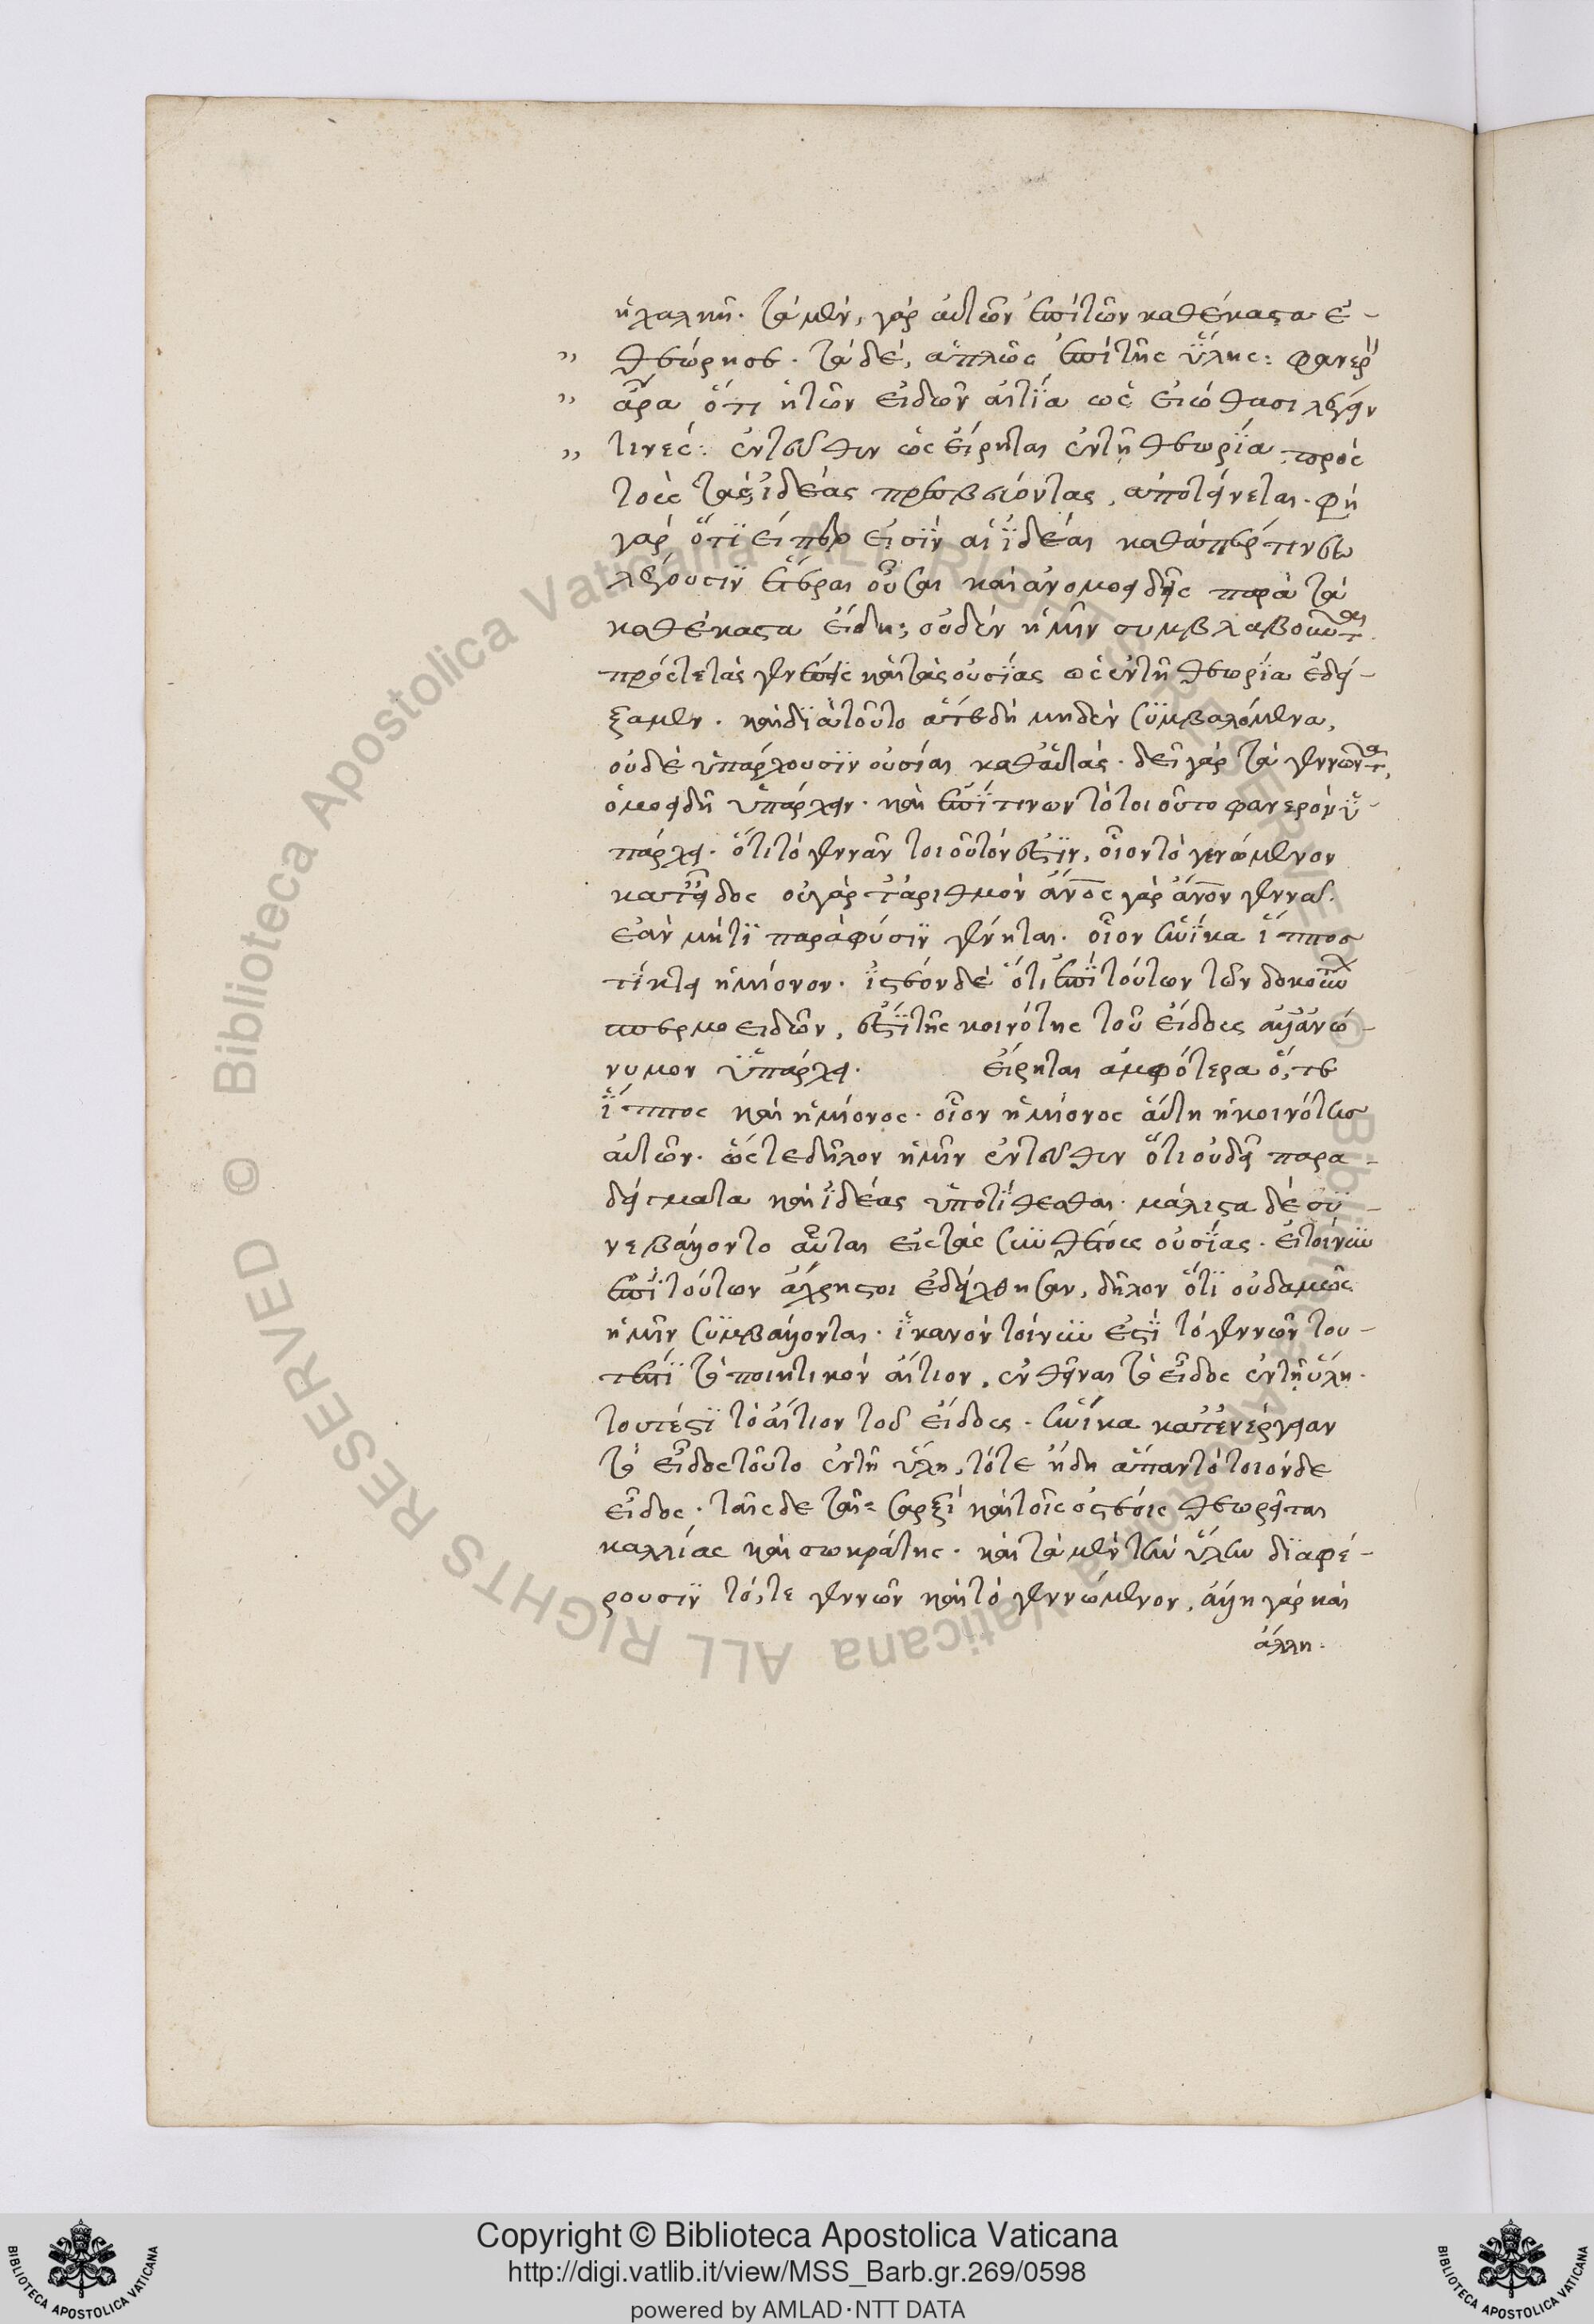 ἡ χαλκῆ. τὰ μὲν, γὰρ αὐτῶν ἐπὶ τῶν καθέκαστα ἐ-
θεώρησε. τὰ δὲ, ἁπλῶς ἐπὶ τῆς ὕλης: φανερὸν
ἄρα ὅτι ἡ τῶν εἰδῶν αἰτία ὡς εἰώθασι λέγειν
τινές: ἐντεῦθεν ὡς εἴρηται ἐν τῇ θεωρίᾳ πρὸς
τοὺς τὰς ἰδέας πρεσβεύοντας, ἀποτείνεται. φησὶ
γὰρ ὅτι εἴπερ εἰσὶν αἱ ἰδέαι καθάπερ τινὲς
λέγουσιν ἕτεραι οὖσαι καὶ ἀνομοειδεῖς παρὰ τὰ
καθέκαστα εἴδη; οὐδὲν ἡμῖν συμβλαβοῦνται
πρός τε τὰς γενέσεις καὶ τὰς οὐσίας ὡς ἐν τῇ θεωρίᾳ ἐδεί-
ξαμεν. καὶ διὰ τοῦτο ἅτε δὴ μηδὲν συμβαλόμενα,
οὐδὲ ὑπάρχουσιν οὐσίαι καθ' αὑτάς. δεῖ γὰρ τὰ γεννῶντα,
ὁμοειδῆ ὑπάρχειν. καὶ ἐπί τινων τὸ τοιοῦτο φανερὸν ὑ-
πάρχει. ὅτι τὸ γεννᾶν τοιοῦτόν ἐστιν, οἷον τὸ γενώμενον
κατ' εἶδος οὐ γὰρ κατ' ἀριθμὸν ἄνος γὰρ ἄνον γεννᾷ.
ἐὰν μήτι παρὰ φύσιν γένηται. οἷον ἡνίκα ἵππος
τίκτει ἡμίονον. ἰστέον δὲ ὅτι ἐπὶ τούτων τῶν δοκούντων
ἑτερμοειδῶν, ἐστὶ τῆς κοινότης τοῦ εἴδους ἀλλ' ἀνώ-
νυμον ὑπάρχει. εἴρηται ἀμφότερα ὅ,τε
ἵππος καὶ ἡμίονος. οἷον ἡμίονος αὕτη ἡ κοινότης
αὐτῶν. ὥστε δῆλον ἡμῖν ἐντεῦθεν ὅτι οὐ δεῖ παρα-
δείγματα καὶ ἰδέας ὑποτίθεσθαι. μάλιστα δὲ συ-
νεβάλλοντο αὗται εἰς τὰς συνθέτους οὐσίας. εἰ τοίνυν
ἐπὶ τούτων ἄχρηστοι ἐδείχθησαν, δῆλον ὅτι οὐδαμῶς
ἡμῖν συμβάλλονται. ἱκανὸν τοίνυν ἐστὶ τὸ γεννῶν του-
τέστι τὸ ποιητικὸν αἴτιον, ἐνθεῖναι τὸ εἶδος ἐν τῇ ὕλῃ.
τουτέστι τὸ αἴτιον τοῦ εἴδους. ἡνίκα κατ' ἐνέργειαν
τὸ εἶδος τοῦτο ἐν τῇ ὕλῃ, τότε ἤδη ἅπαν τὸ τοιόνδε
εἶδος. ταῖς δε ταῖς σαρξὶ καὶ τοῖς ὀστέοις θεωρεῖται
καλλίας καὶ σωκράτης. καὶ τὰ μὲν τὴν ὕλην διαφέ-
ρουσιν τό,τε γεννῶν καὶ τὸ γεννώμενον, ἄλλη γὰρ καὶ
ἄλλη.
Copyright © Biblioteca Apostolica Vaticana
http://digi.vatlib.it/view/MSS_Barb.gr.269/0598
powered by AMLAD·NTT DATA